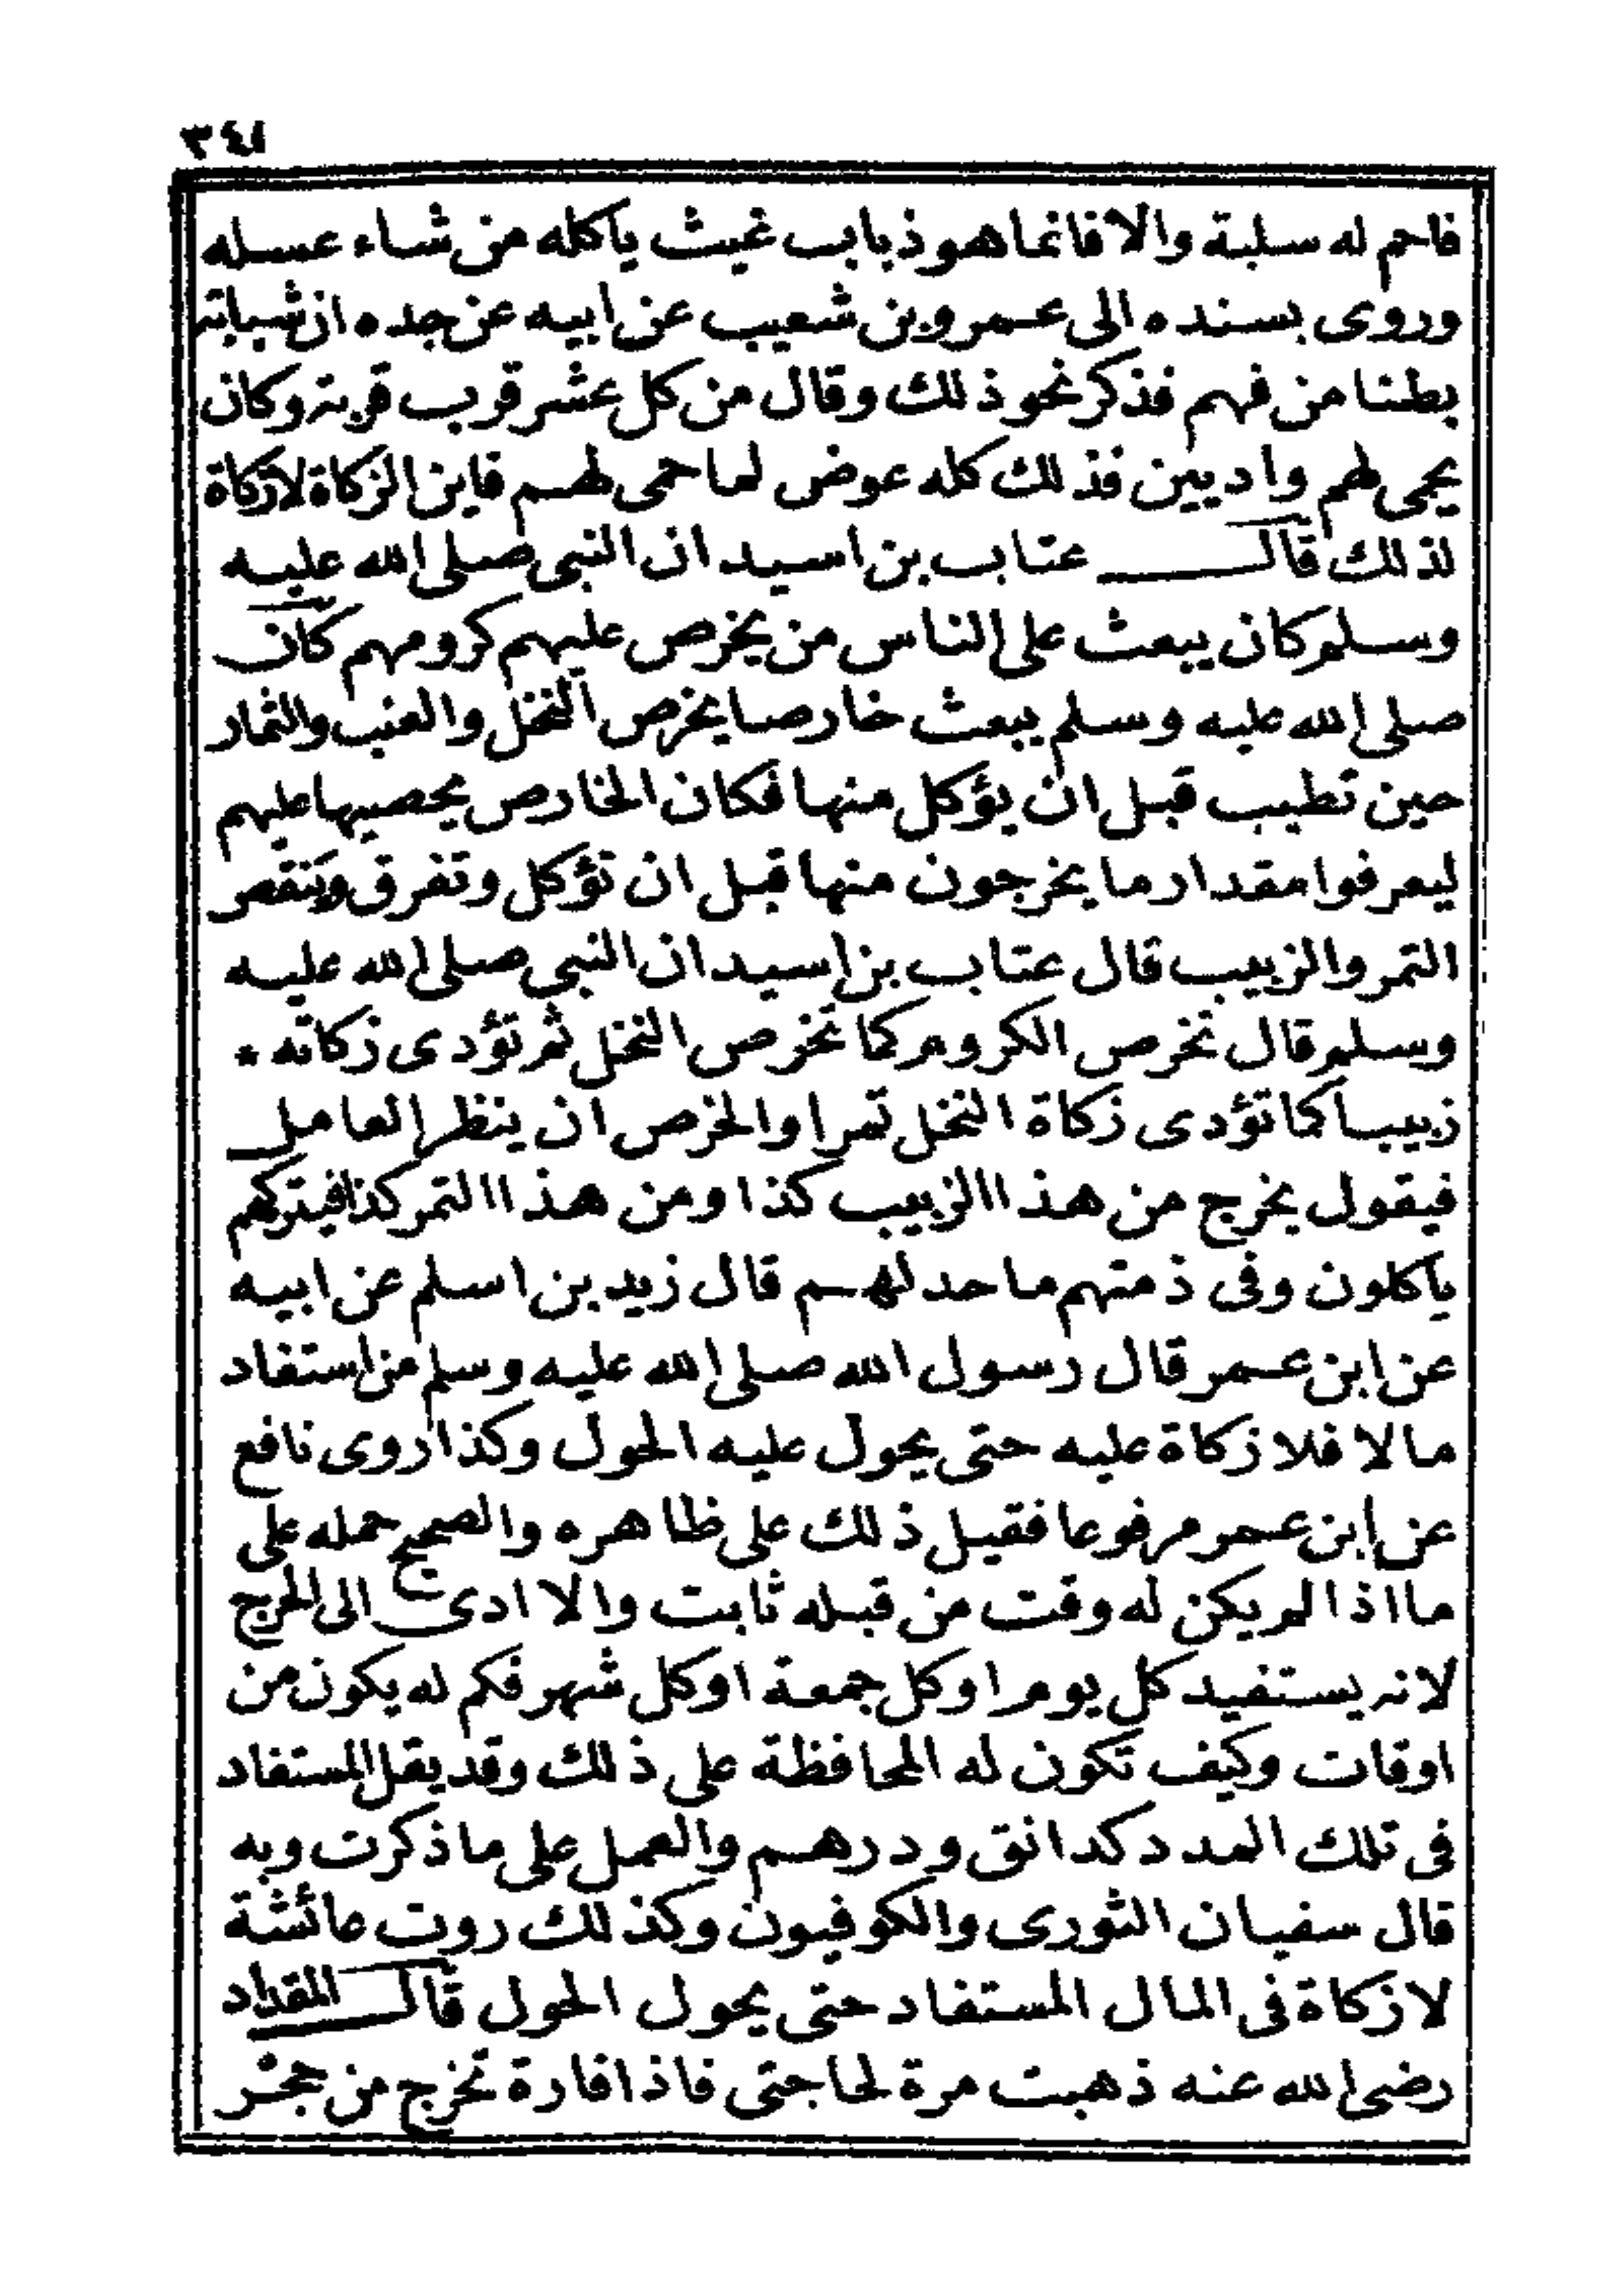 ٣٤١
فاحم له سلبة والا فانما هو ذباب غيث ياكله من شاء عسله
وروى بسنده الى عمرو بن شعيب عن ابيه عن جده ان شبابة
بطنا من فهم فذكر نحو ذلك وقال من كل عشر قرب قربة وكان
يحمى لهم واديين فذلك كله عوض لما حمى لهم فاين الزكاة لازكاة
لذلك قال عتاب بن اسيد ان النبى صلى الله عليه
وسلم كان يبعث على الناس من يخرص عليهم كرومهم كان
صلى الله عليه وسلم يبعث خارصا يخرص النخل والعنب والثمار
حين تطيب قبل ان يؤكل منها فكان الخارص يحصيها عليهم
ليعرفوا مقدار ما يخرجون منها قبل ان تؤكل وتفرق وينقص
التمر والزبيب قال عتاب بن اسيد ان النبى صلى الله عليه
وسلم قال تخرص الكروم كما تخرص النخل ثم تؤدى زكاته *
زبيبا كما تؤدى زكاة النخل تمرا والخرص ان ينظر العامل
فيقول يخرج من هذا الزبيب كذا ومن هذا التمر كذا فيتركهم
ياكلون وفى ذمتهم ما حد لهم قال زيد بن اسلم عن ابيه
عن ابن عمر قال رسول الله صلى الله عليه وسلم من استفاد
مالا فلا زكاة عليه حتى يحول عليه الحول وكذا روى نافع
عن ابن عمر مرفوعا فقيل ذلك على ظاهره والصحيح حمله على
ما اذا لم يكن له وقت من قبله ثابت والا ادى الى الحرج
لانه يستفيد كل يوم او كل جمعة او كل شهر فكم له يكون من
اوقات وكيف تكون له المحافظة على ذلك وقد يقل المستفاد
فى تلك المدد كدانق ودرهم والعمل على ما ذكرت وبه
قال سفيان الثورى والكوفيون وكذلك روت عائشة
لا زكاة فى المال المستفاد حتى يحول الحول قال المقداد
رضى الله عنه ذهبت مرة لحاجتى فاذا فارة تخرج من جحر